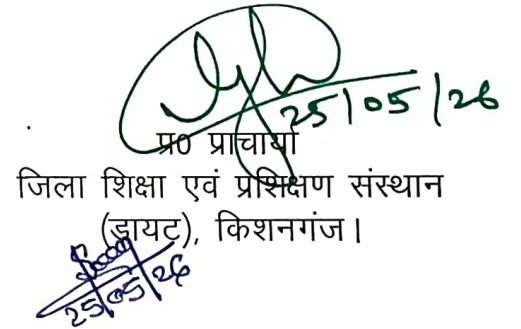 25/05/26
प्र० प्राचार्या
जिला शिक्षा एवं प्रशिक्षण संस्थान
(डायट), किशनगंज।
25/05/26